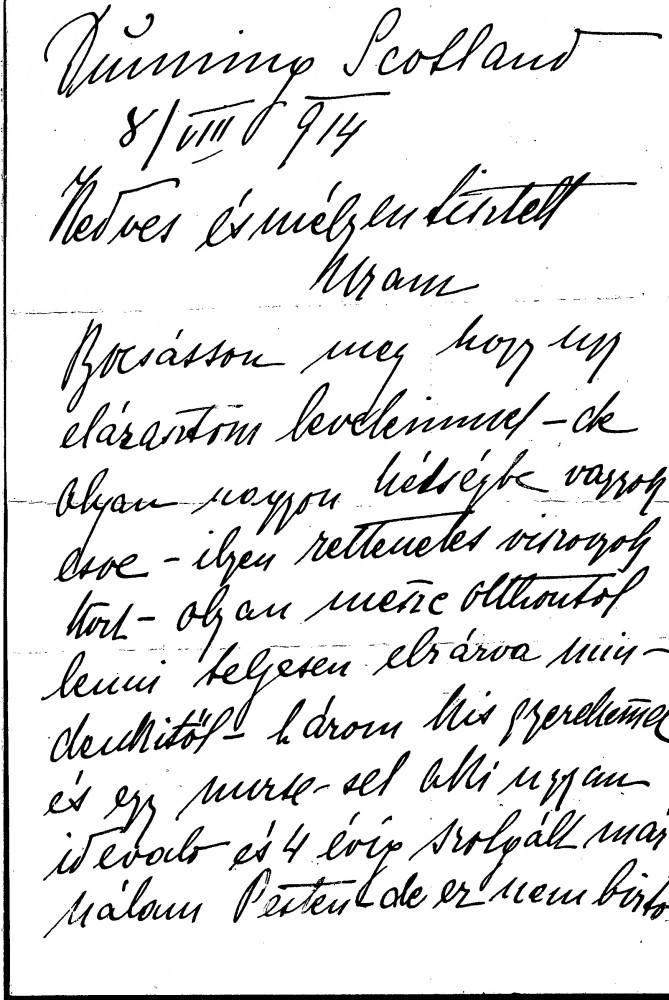 Dunning Scotland
8/VIII 914
Kedves és mélyen tisztelt
Uram
Bocsásson meg hogy ugy
elárasztom leveleimmel - de
olyan nagyon kétségbe vagyok
esve - ilyen rettenetes viszonyok
közt - olyan messze otthontól
lenni teljesen elzárva min-
denkitől - három kis gyerekemmel
és egy nurse-sel aki ugyan
idevaló és 4 évig szolgált már
nálam Pesten - de ez nem bizto